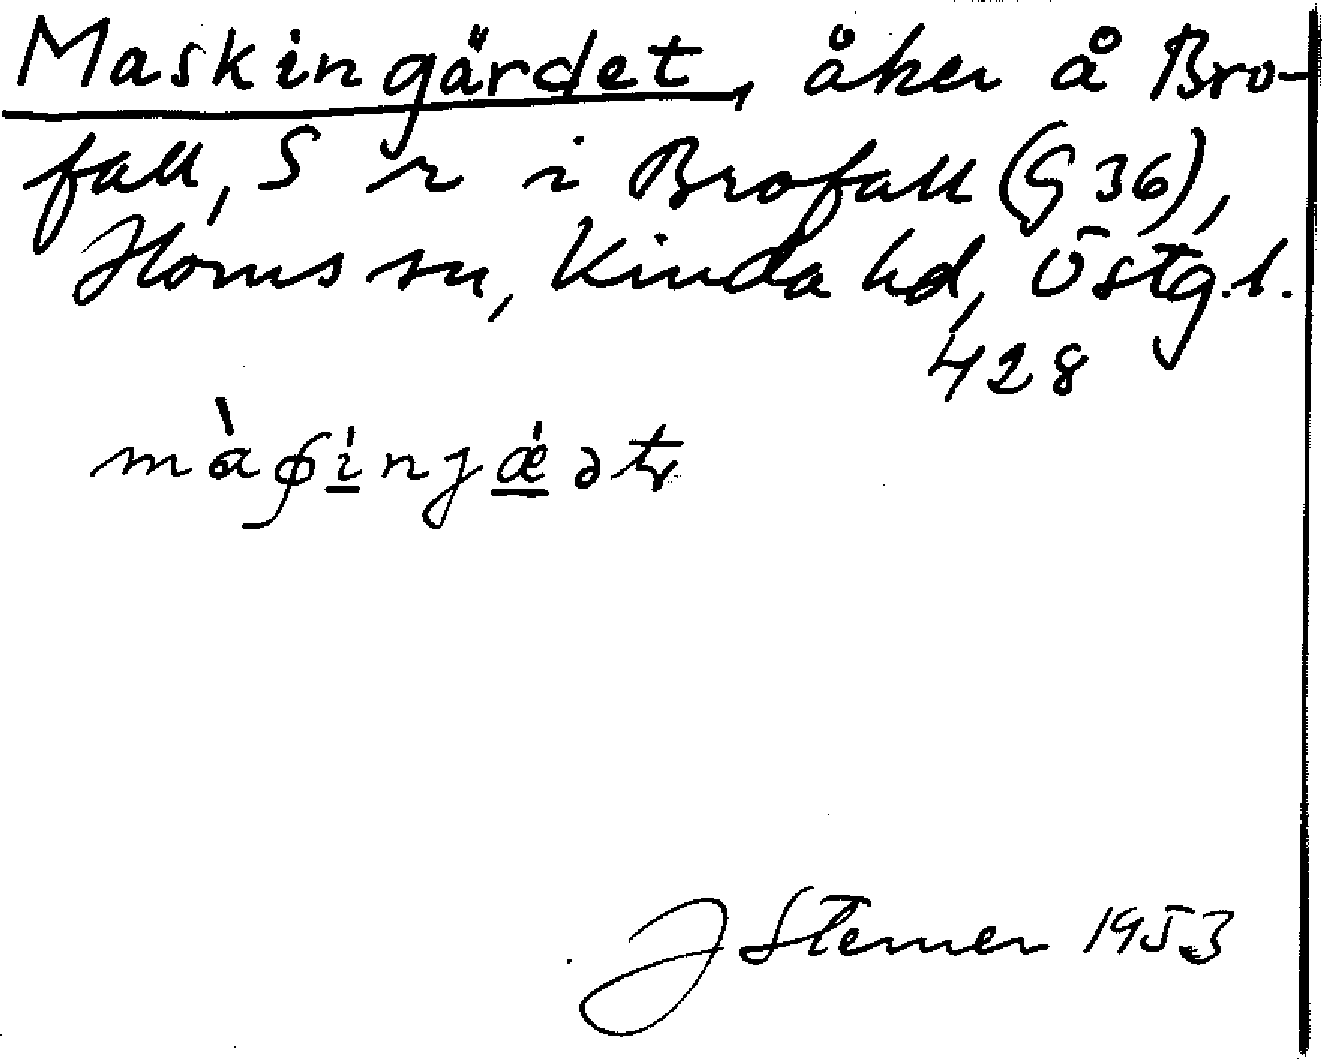 Maskingärdet, åker å Bro-
fall, S r i Brofall (G 36),
Horns sn, Kinda hd, Östg.l.
428
J Sterner 1953